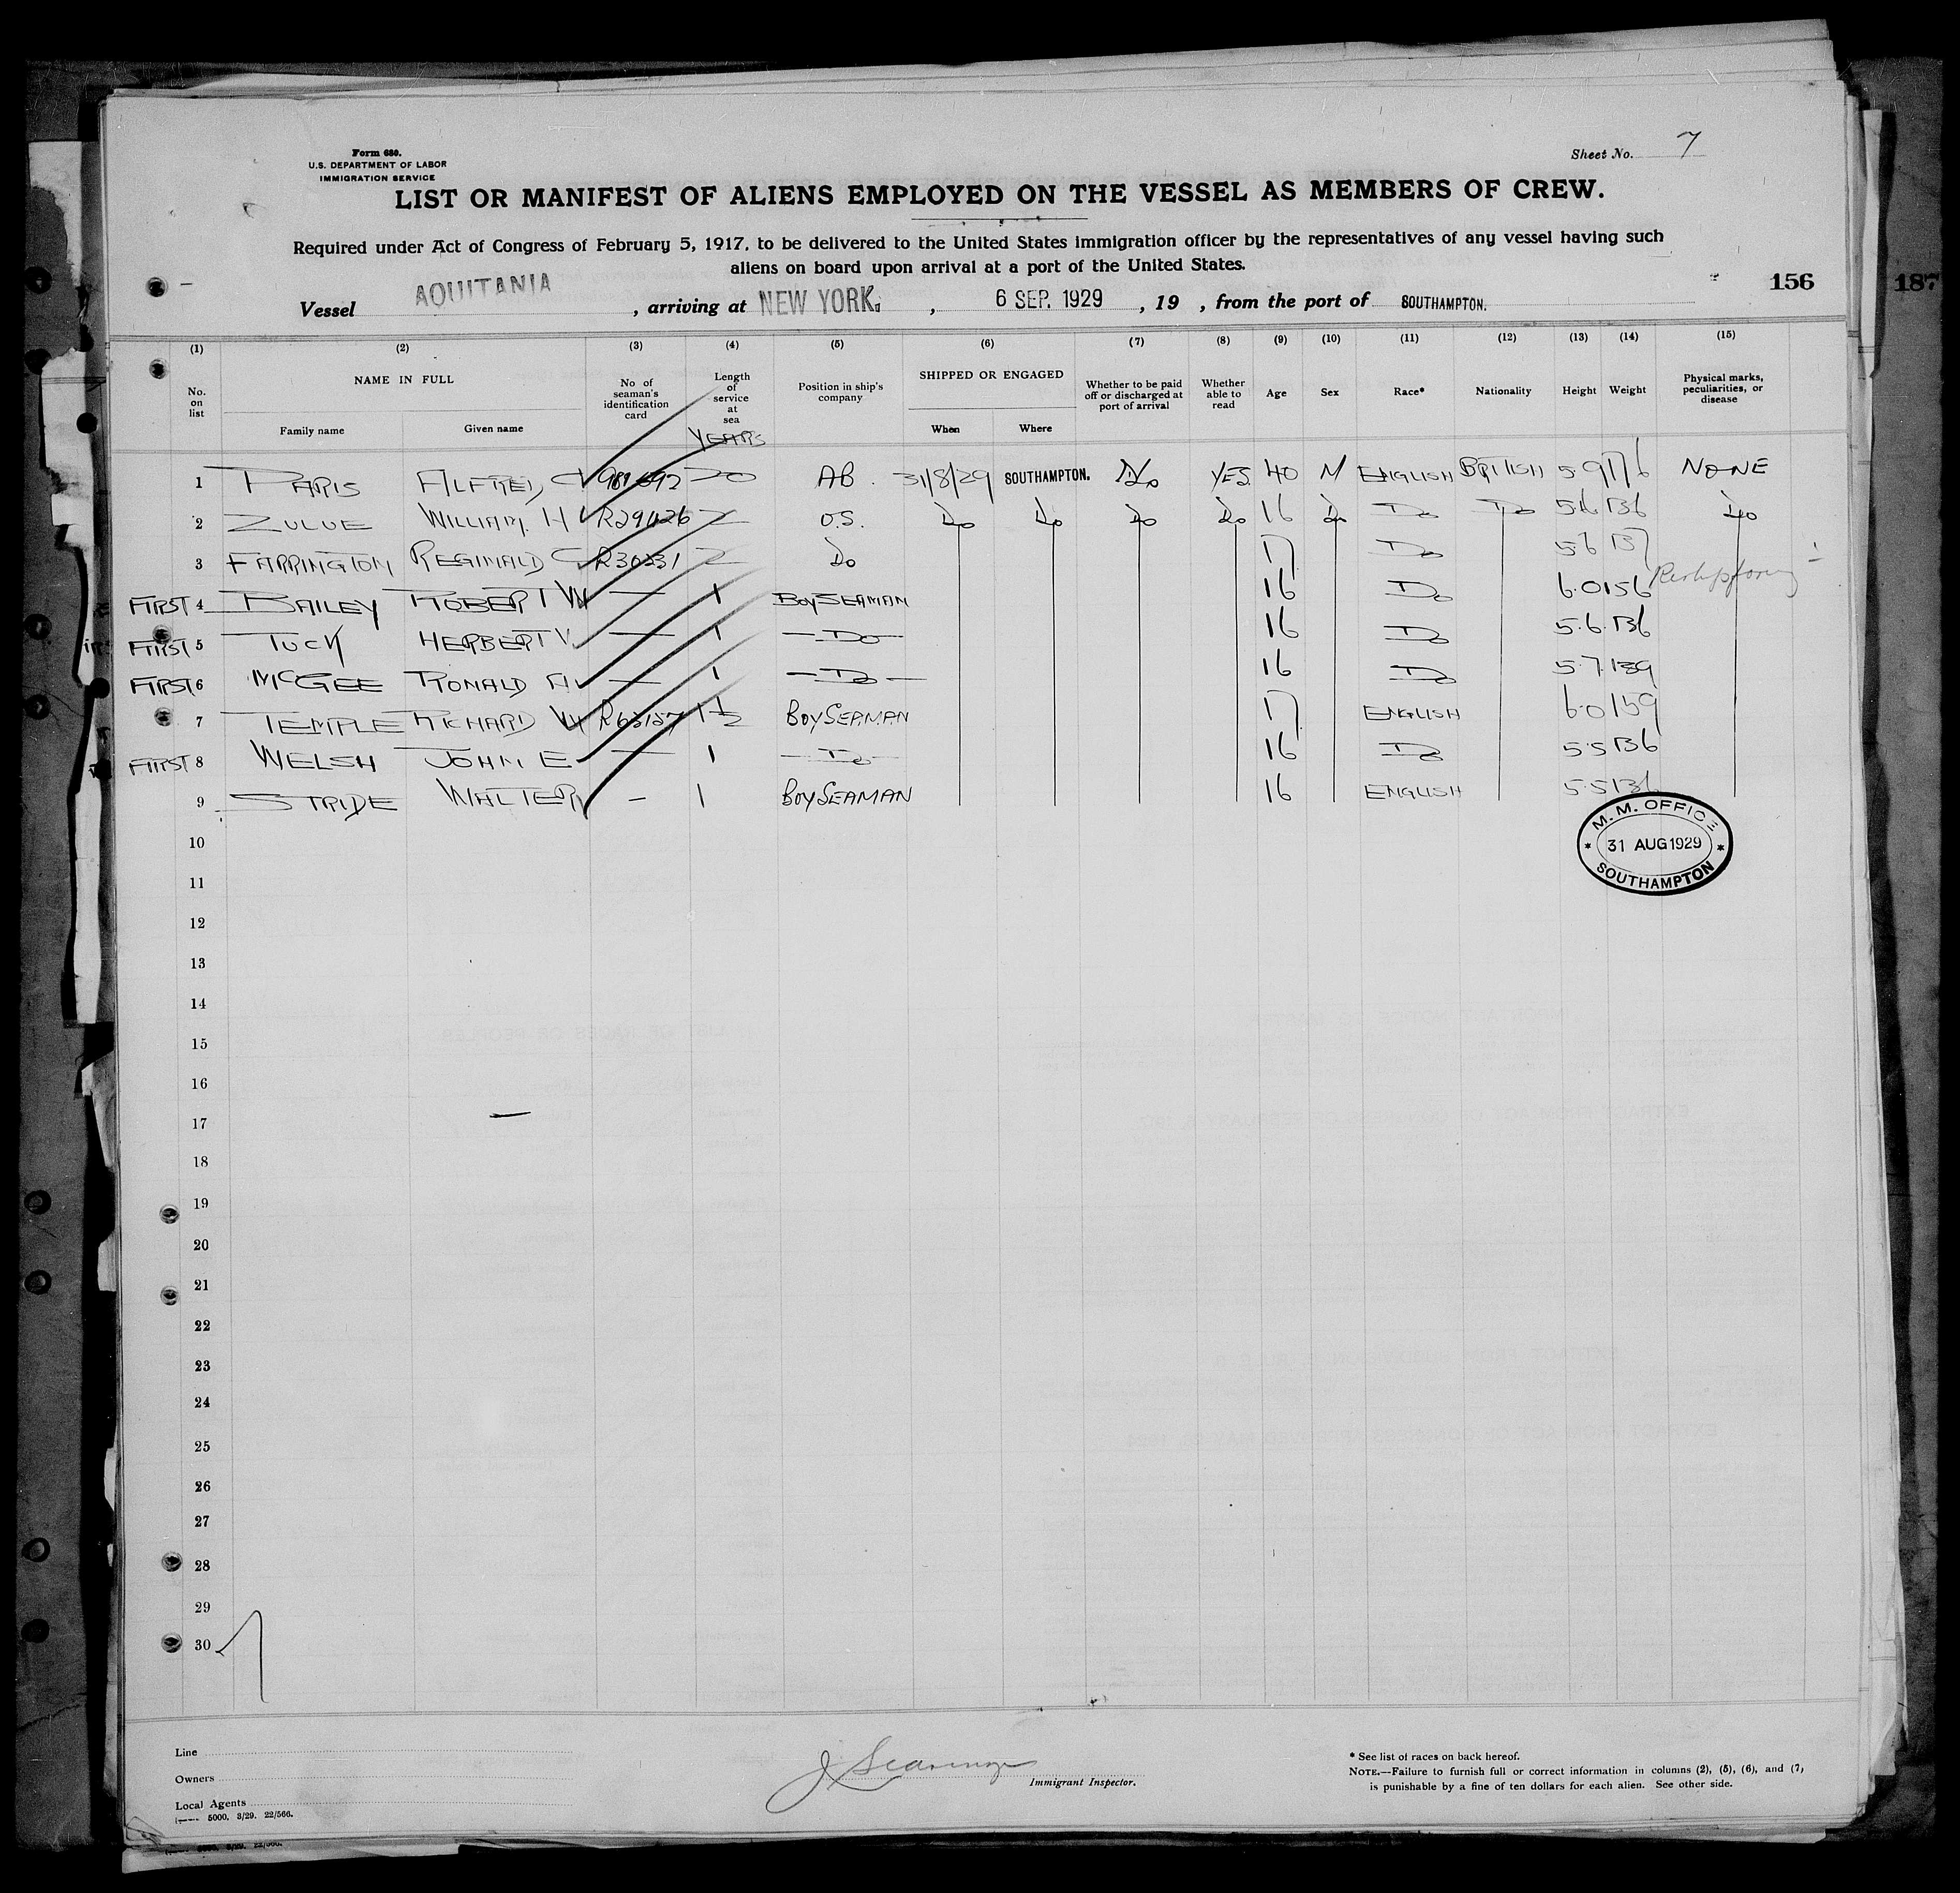 Form 680.
U.S. DEPARTMENT OF LABOR
IMMIGRATION SERVICE
Sheet No. 7
LIST OR MANIFEST OF ALIENS EMPLOYED ON THE VESSEL AS MEMBERS OF CREW.
Required under Act of Congress of February 5, 1917, to be delivered to the United States immigration officer by the representatives of any vessel having such
aliens on board upon arrival at a port of the United States.
156 187
Vessel AQUITANIA, arriving at NEW YORK, 6 SEP. 1929, 19 , from the port of SOUTHAMPTON.
(1) (2) (3) (4) (5) (6) (7) (8) (9) (10) (11) (12) (13) (14) (15)
No. on list
NAME IN FULL
Family name Given name
No of seaman's identification card
Length of service at sea YEARS
Position in ship's company
SHIPPED OR ENGAGED
When Where
Whether to be paid off or discharged at port of arrival
Whether able to read
Age Sex Race* Nationality Height Weight
Physical marks, peculiarities, or disease
1 PARIS ALFRED C 20 AB. 31/8/29 SOUTHAMPTON. No YES 40 M ENGLISH BRITISH 5.9 176 NONE
2 ZULUE WILLIAM. H 2 O.S. Do Do Do Do 16 Do Do Do 5.6 136 Do
3 FARRINGTON REGINALD C R30231 2 Do 17 Do 5.6 137
FIRST 4 BAILEY ROBERT W — 1 BOY SEAMAN 16 Do 6.0 156
FIRST 5 TUCK HERBERT V. — 1 —Do— 16 Do 5.6. 136
FIRST 6 McGEE RONALD A — 1 —Do— 16 Do 5.7. 139
7 TEMPLE RICHARD W 1½ BOY SEAMAN 17 ENGLISH 6.0 159
FIRST 8 WELSH JOHN E — 1 —Do— 16 Do 5.5 136
9 STRIDE WALTER — 1 BOY SEAMAN 16 ENGLISH 5.5 136
M. M. OFFICE
* 31 AUG 1929 *
SOUTHAMPTON
10
11
12
13
14
15
16
17
18
19
20
21
22
23
24
25
26
27
28
29
30
Line
Owners
Local Agents
5000. 3/29. 22/566.
Immigrant Inspector.
* See list of races on back hereof.
NOTE.—Failure to furnish full or correct information in columns (2), (5), (6), and (7)
is punishable by a fine of ten dollars for each alien. See other side.